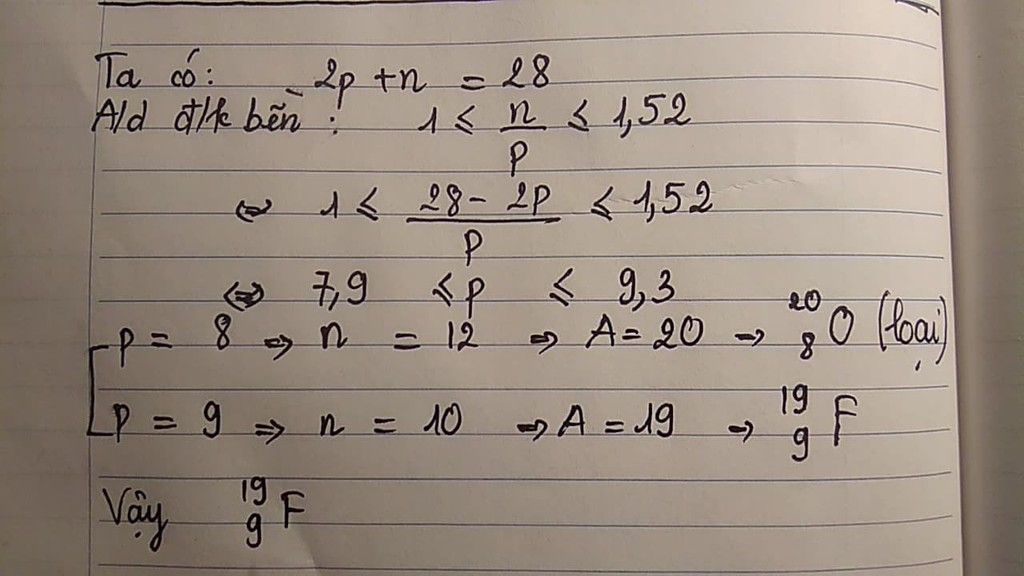 Ta có: 2p + n = 28
A/d đ/k bền : 1 ≤ n/p ≤ 1,52
⇔ 1 ≤ (28 - 2p)/p ≤ 1,52
⇔ 7,9 ≤ p ≤ 9,3
p = 8 ⇒ n = 12 ⇒ A = 20 → ²⁰₈O (loại)
p = 9 ⇒ n = 10 ⇒ A = 19 → ¹⁹₉F
Vậy ¹⁹₉F